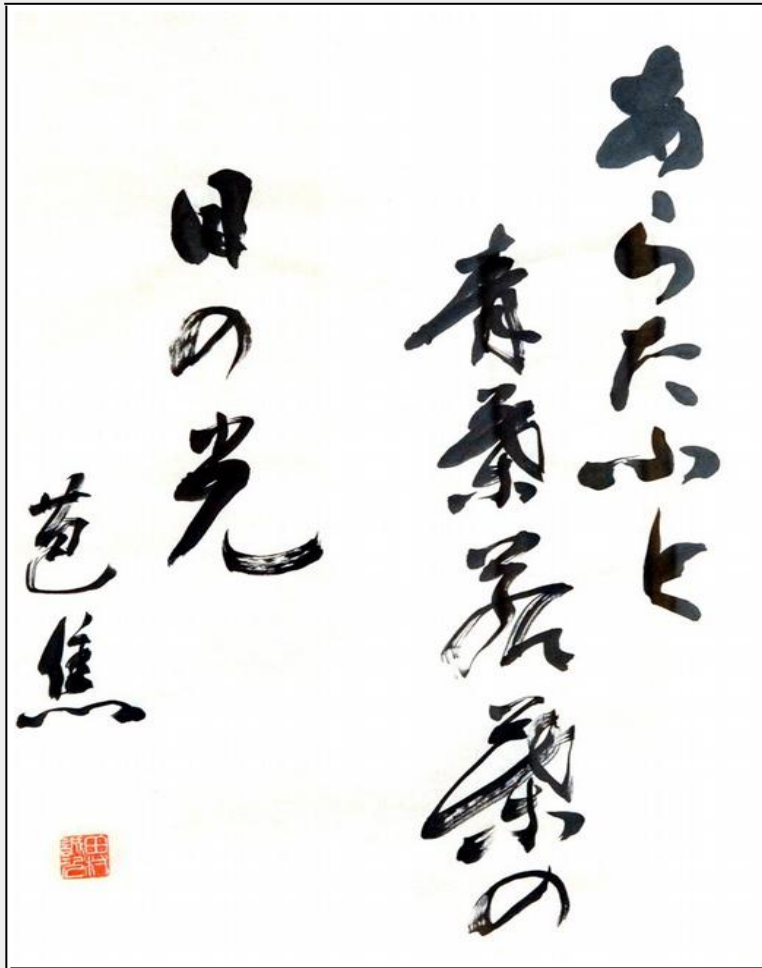 あらたふと
青葉若葉の
日の光
芭蕉
田村